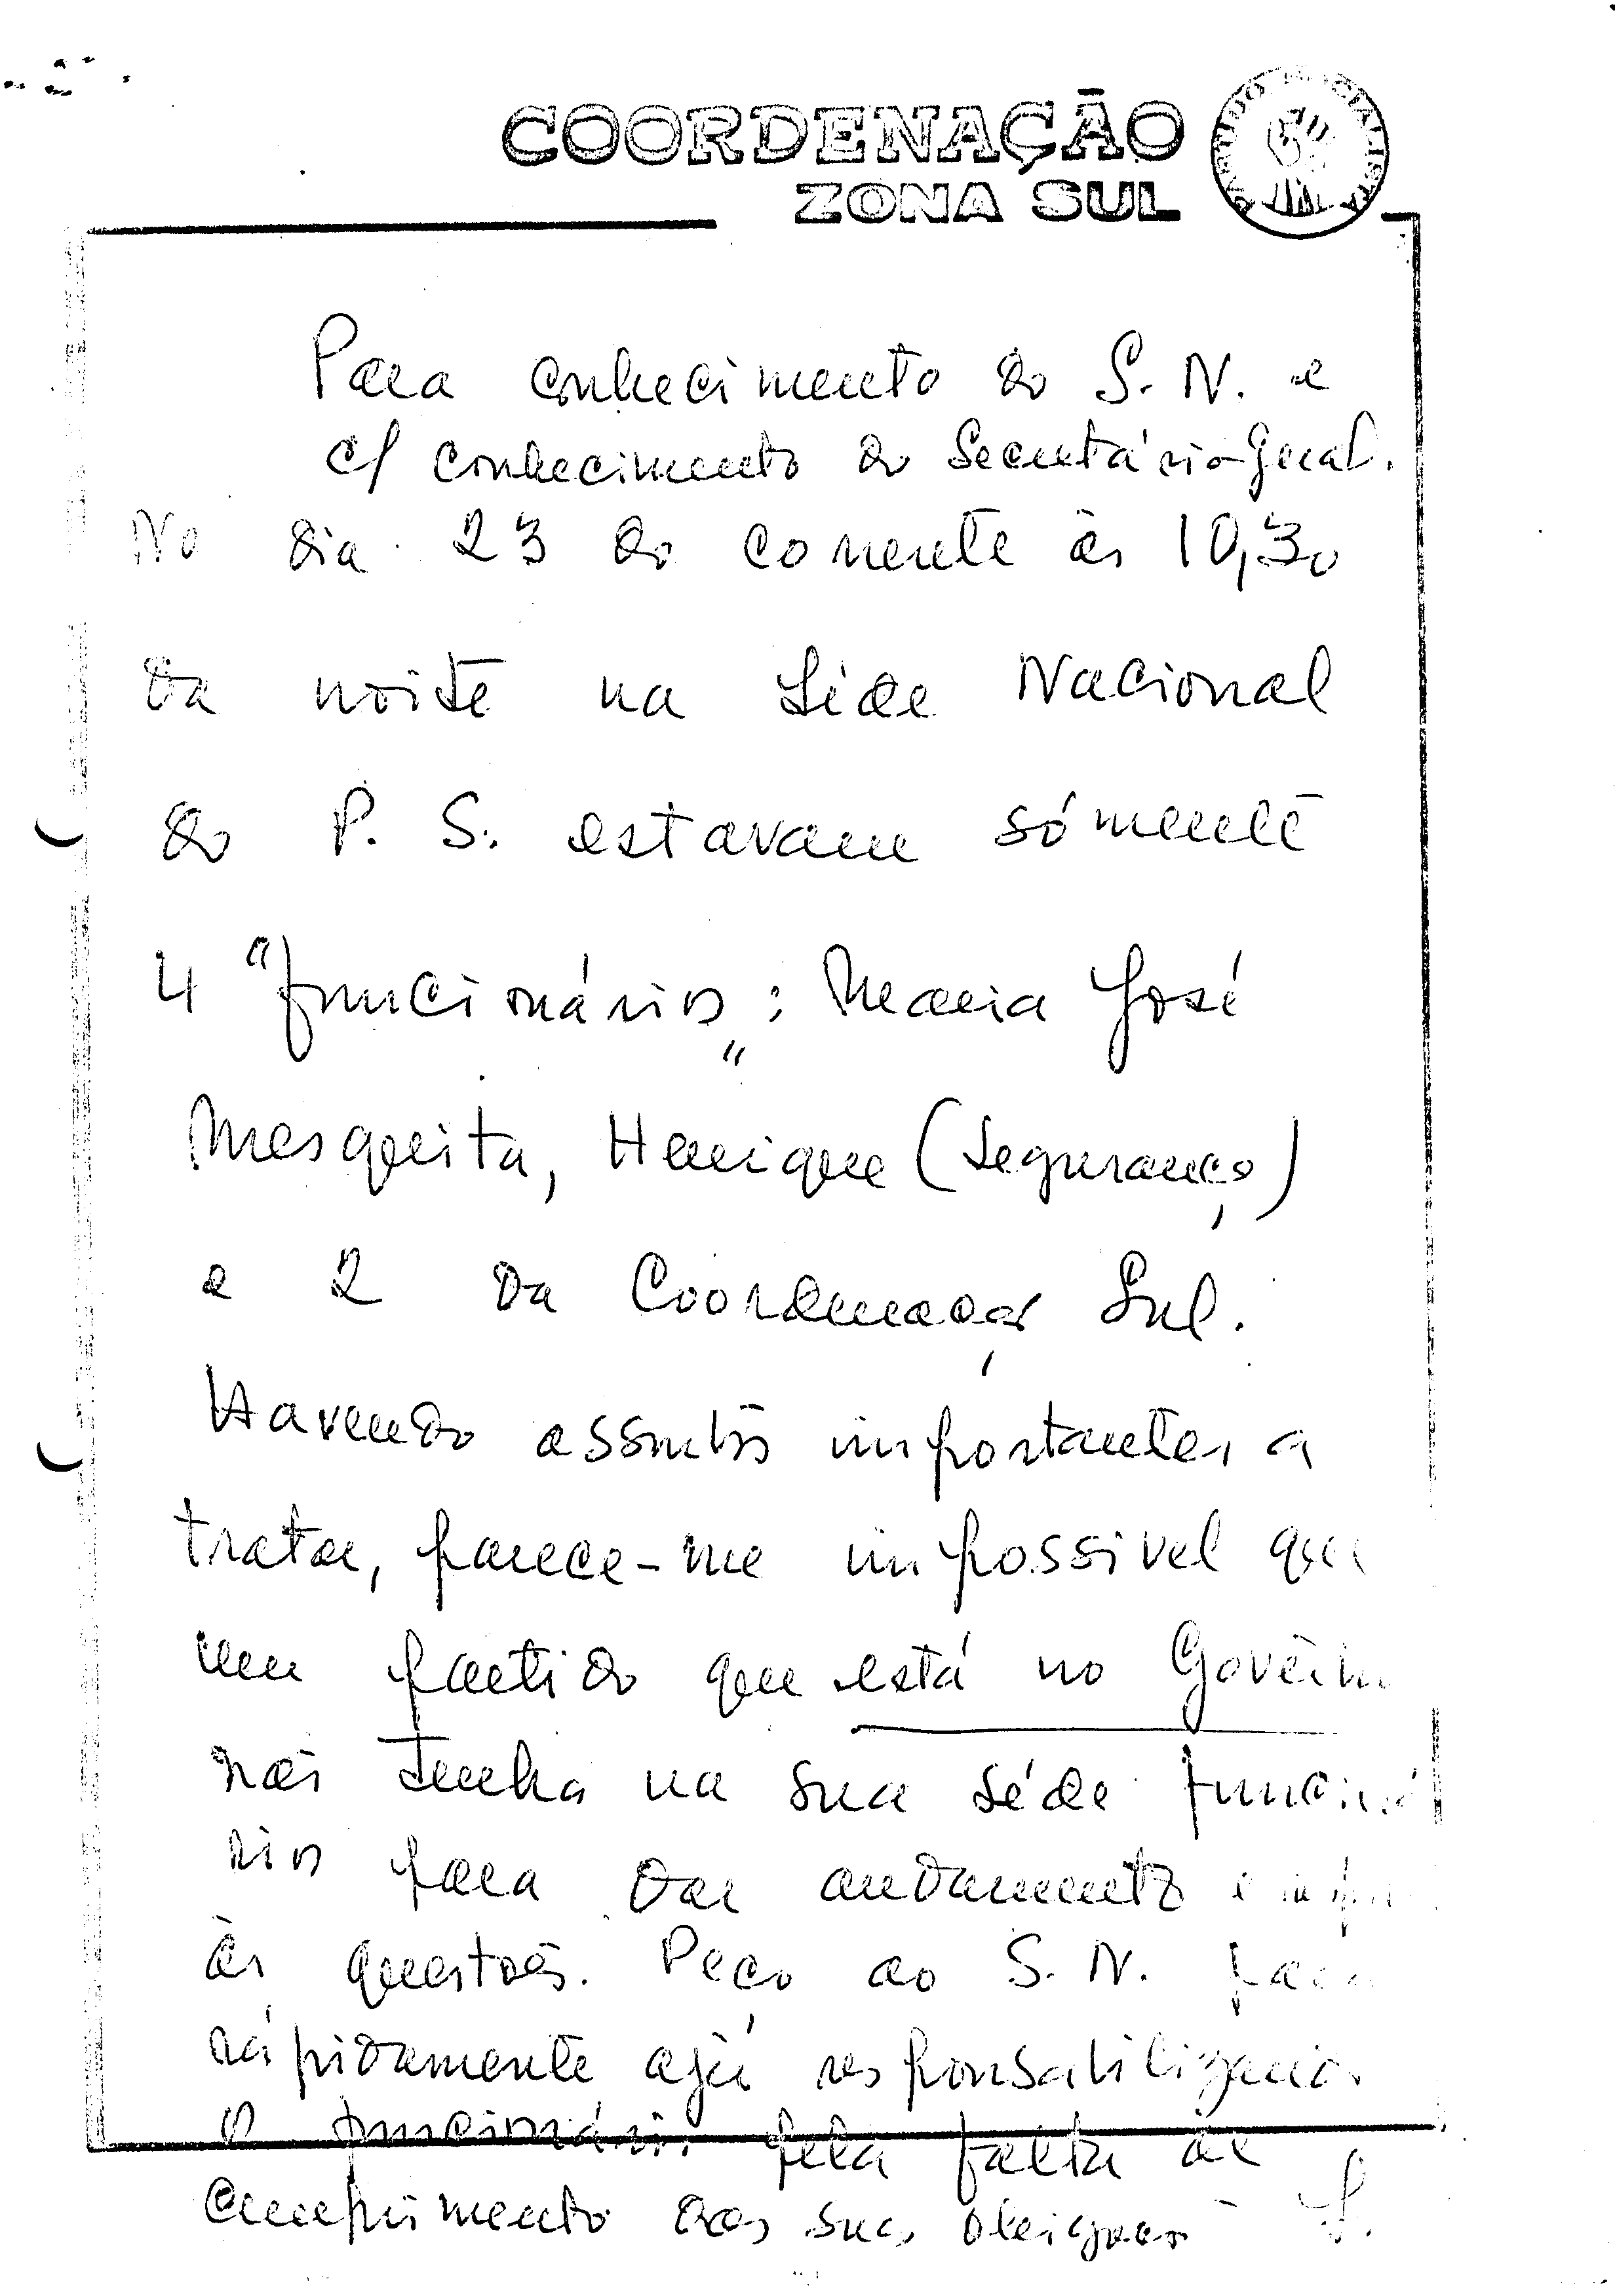 COORDENAÇÃO
ZONA SUL
PARTIDO SOCIALISTA
Para conhecimento do S. N. e
c/ conhecimento do Secretário-Geral.
No dia 23 do corrente às 10,30
da noite na Séde Nacional
do P. S. estavam sómente
4 "funcionários": Maria José
Mesquita, Henrique (Segurança)
e 2 da Coordenação Sul.
Havendo assuntos importantes a
tratar, parece-me impossivel que
um partido que está no Govêrno
não tenha na sua séde funcioná
rios para dar andamento
às questões. Peço ao S. N. para
rápidamente agir responsabilizando
o funcionário pela falta de
cumprimento das suas obrigações